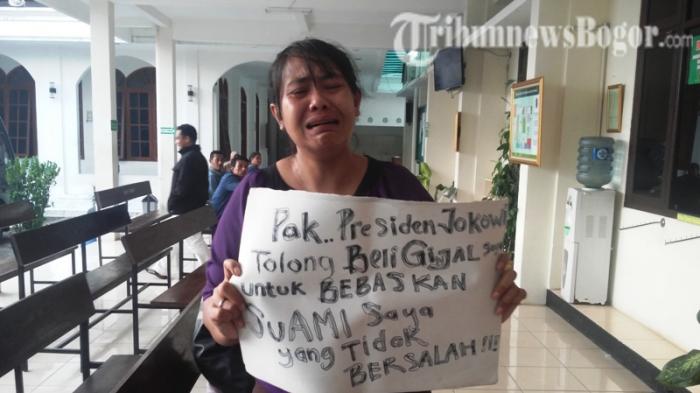 TribunnewsBogor.com
Pak.. Presiden Jokowi
Tolong Beli Ginjal saya
untuk BEBASKAN
SUAMI Saya
yang Tidak
BERSALAH!!!